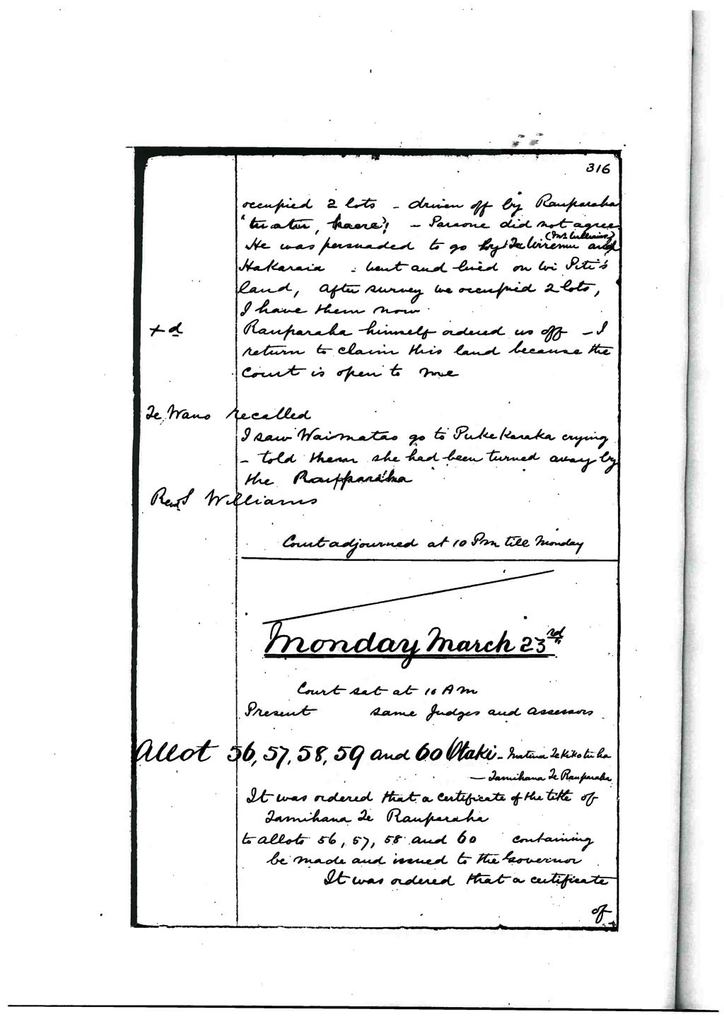 316
occupied 2 lots - driven off by Rauparaha
" haere"! - Paraone did not agree
(Mr Williams?)
He was persuaded to go by Te Wiremu and
Hakaraia - went and lived on Wi Piti's
land, after survey we occupied 2 lots,
I have them now
+d Rauparaha himself ordered us off - I
return to claim this land because the
Court is open to me
Te Wano recalled
I saw Waimatao go to Pukekaraka crying
- told them she had been turned away by
the Rauparaha
Revd S Williams
Court adjourned at 10 Pm till Monday
Monday March 23rd
Court sat at 10 AM
Present same Judges and assessors
Allot 56, 57, 58, 59 and 60 Otaki - Matene Te
- Tamihana Te Rauparaha
It was ordered that a certificate of the title of
Tamihana Te Rauparaha
to allots 56, 57, 58 and 60 containing
be made and issued to the Governor
It was ordered that a certificate
of